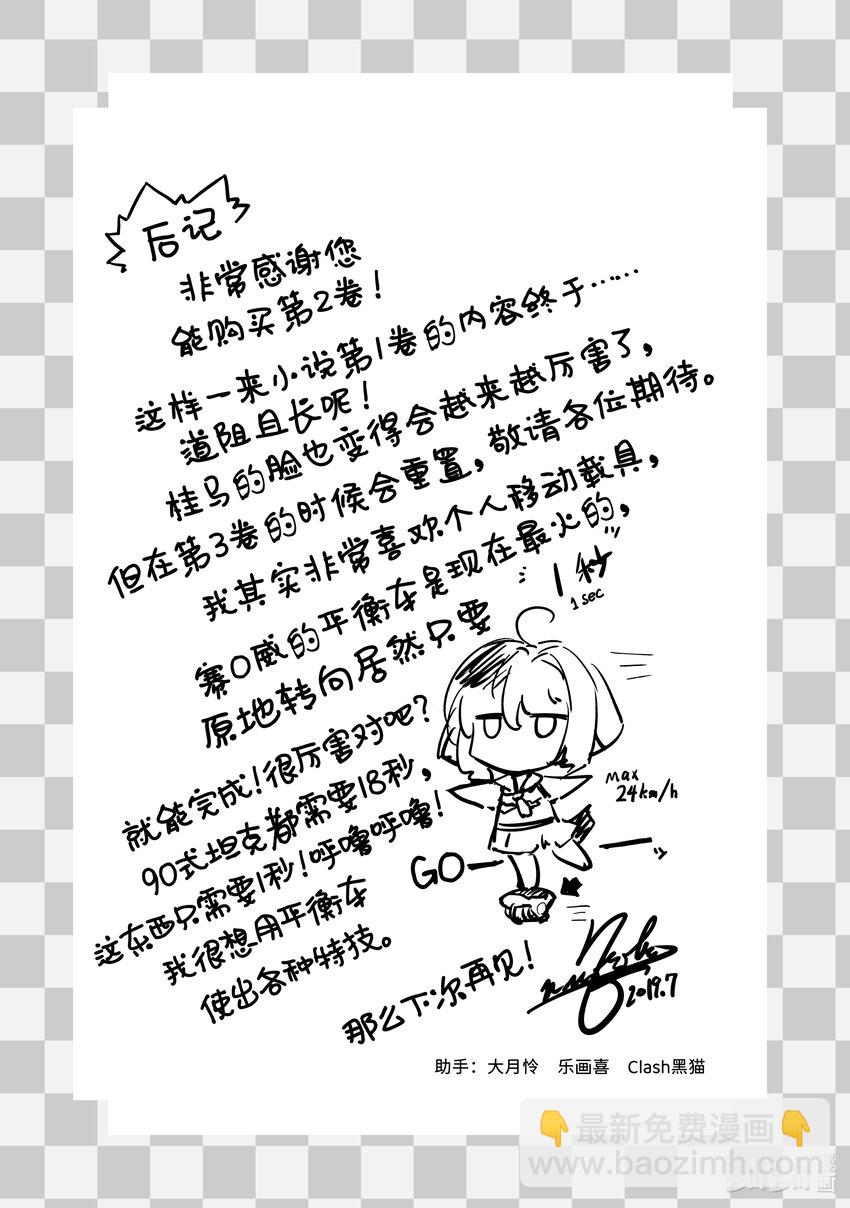 后记
非常感谢您
能购买第2卷！
这样一来小说第1卷的内容终于……
道阻且长呢！
桂马的脸也变得会越来越厉害了，
但在第3卷的时候会重置，敬请各位期待。
我其实非常喜欢个人移动载具，
赛O威的平衡车是现在最火的，
原地转向居然只要
1秒
1sec
就能完成！很厉害对吧？
90式坦克都需要18秒，
这东西只需要1秒！呼噜呼噜！
我很想用平衡车
使出各种特技。
max
24km/h
GO——
那么下次再见！
2019.7
助手：大月怜 乐画喜 Clash黑猫
👇最新免费漫画👇
www.baozimh.com